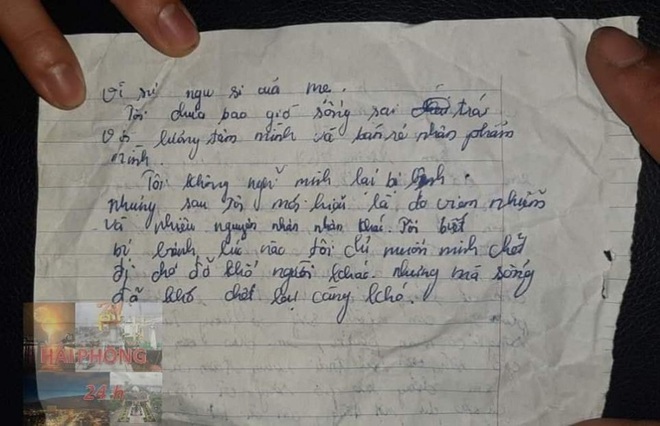 Vì sự ngu si của mẹ.
Tôi chưa bao giờ sống sai trái
với lương tâm mình và bán rẻ nhân phẩm
mình.
Tôi không nghĩ mình lại bị bệnh.
nhưng sau tôi mới hiểu là do viêm nhiễm
và nhiều nguyên nhân khác. Tôi biết
bị bệnh lúc nào tôi chỉ muốn mình chết
đi cho đỡ khổ người khác. nhưng mà sống
đã khó chết lại càng khó.
HẢI PHÒNG
24h